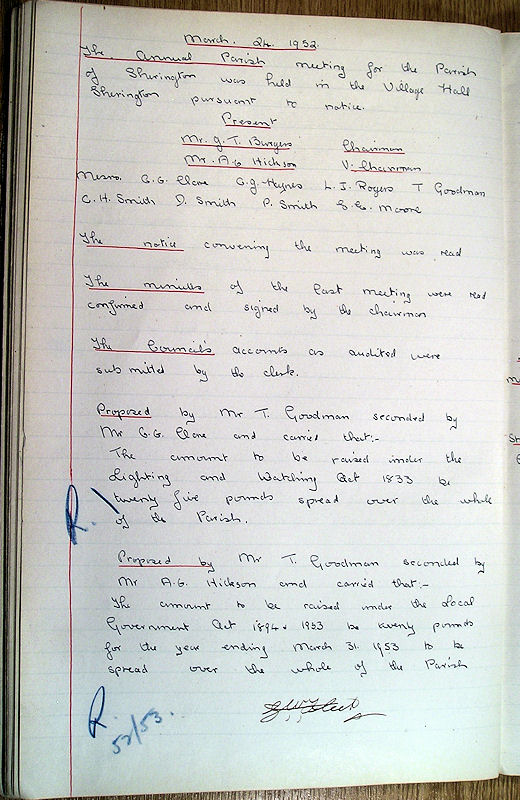 March. 24. 1952.
The Annual Parish meeting for the Parish
of Sherington was held in the Village Hall
Sherington pursuant to notice.
Present
Mr. G. T. Burgess Chairman
Mr. A.G Hickson V. Chairman
Messrs. G.G. Clare C.J. Haynes L.J. Rogers T Goodman
C.H. Smith D. Smith P. Smith S.C. Moore
The notice convening the meeting was read
The minutes of the last meeting were read
confirmed and signed by the chairman
The Council's accounts as audited were
submitted by the clerk.
Proposed by Mr T. Goodman seconded by
Mr G.G. Clare and carried that:-
The amount to be raised under the
Lighting and Watching Act 1833 be
twenty five pounds spread over the whole
of the Parish.
R.
Proposed by Mr T. Goodman seconded by
Mr A.G. Hickson and carried that:-
The amount to be raised under the Local
Government Act 1894 & 1933 be twenty pounds
for the year ending March 31. 1953 to be
spread over the whole of the Parish
R.
52/53.